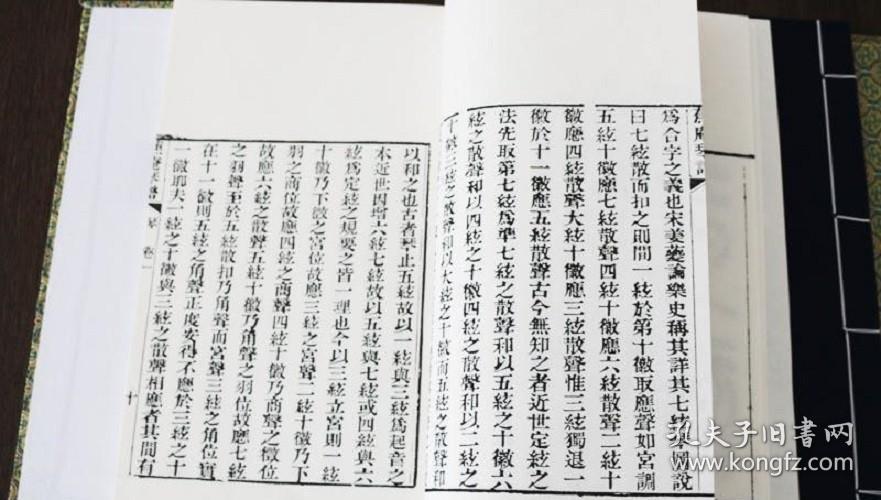 爲合字之義也宋姜夔論樂史稱其詳其七絃琴圖說
曰七絃散而扣之則間一絃於第十徽取應聲如宮調
五絃十徽應七絃散聲四絃十徽應六絃散聲二絃十
徽應四絃散聲大絃十徽應三絃散聲惟三絃獨退一
徽於十一徽應五絃散聲古今無知之者近世定絃之
法先取第七絃爲準七絃之散聲和以五絃之十徽六
絃之散聲和以四絃之十徽四絃之散聲和以二絃之
十徽三絃之散聲和以大絃之十徽而五絃之散聲和
以和之也古者琴止五絃故以一絃與三絃爲起音之
本近世因增六絃七絃故以五絃與七絃或四絃與六
絃爲定絃之規要之皆一理也今以三絃立宮則一絃
十徽乃下徵之宮位故應三絃之宮聲二絃十徽乃下
羽之商位故應四絃之商聲四絃十徽乃商聲之徵位
故應六絃之散聲五絃十徽乃角聲之羽位故應七絃
之羽聲至於五絃散扣乃角聲而宮聲三絃之角位實
在十一徽則五絃之角聲正度安得不應於三絃之十
一徽耶夫一絃之十徽與三絃之散聲相應者其間有
卷一
十
孔夫子旧书网
www.kongfz.com